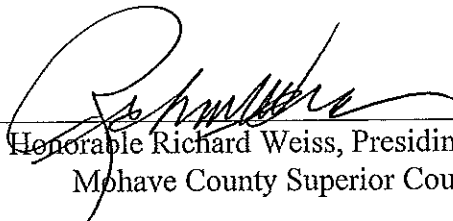 Honorable Richard Weiss, Presidin
Mohave County Superior Cou